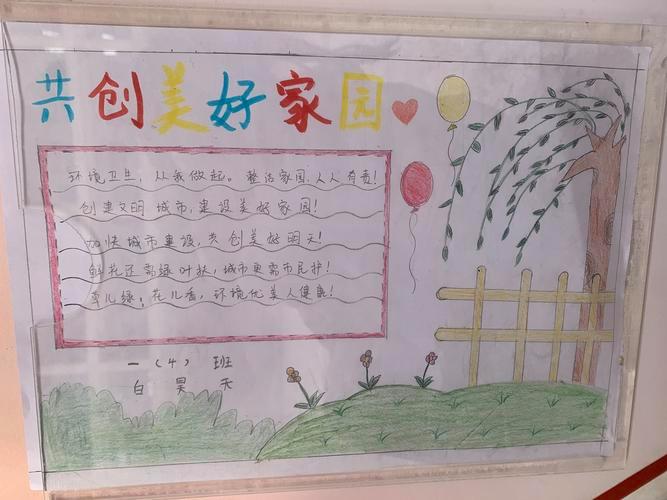 共创美好家园
环境卫生，从我做起。整洁家园，人人有责！
创建文明城市，建设美好家园！
加快城市建设，共创美好明天！
鲜花还需绿叶扶，城市更需市民护！
草儿绿，花儿香，环境优美人健康！
一（4）班
白昊天